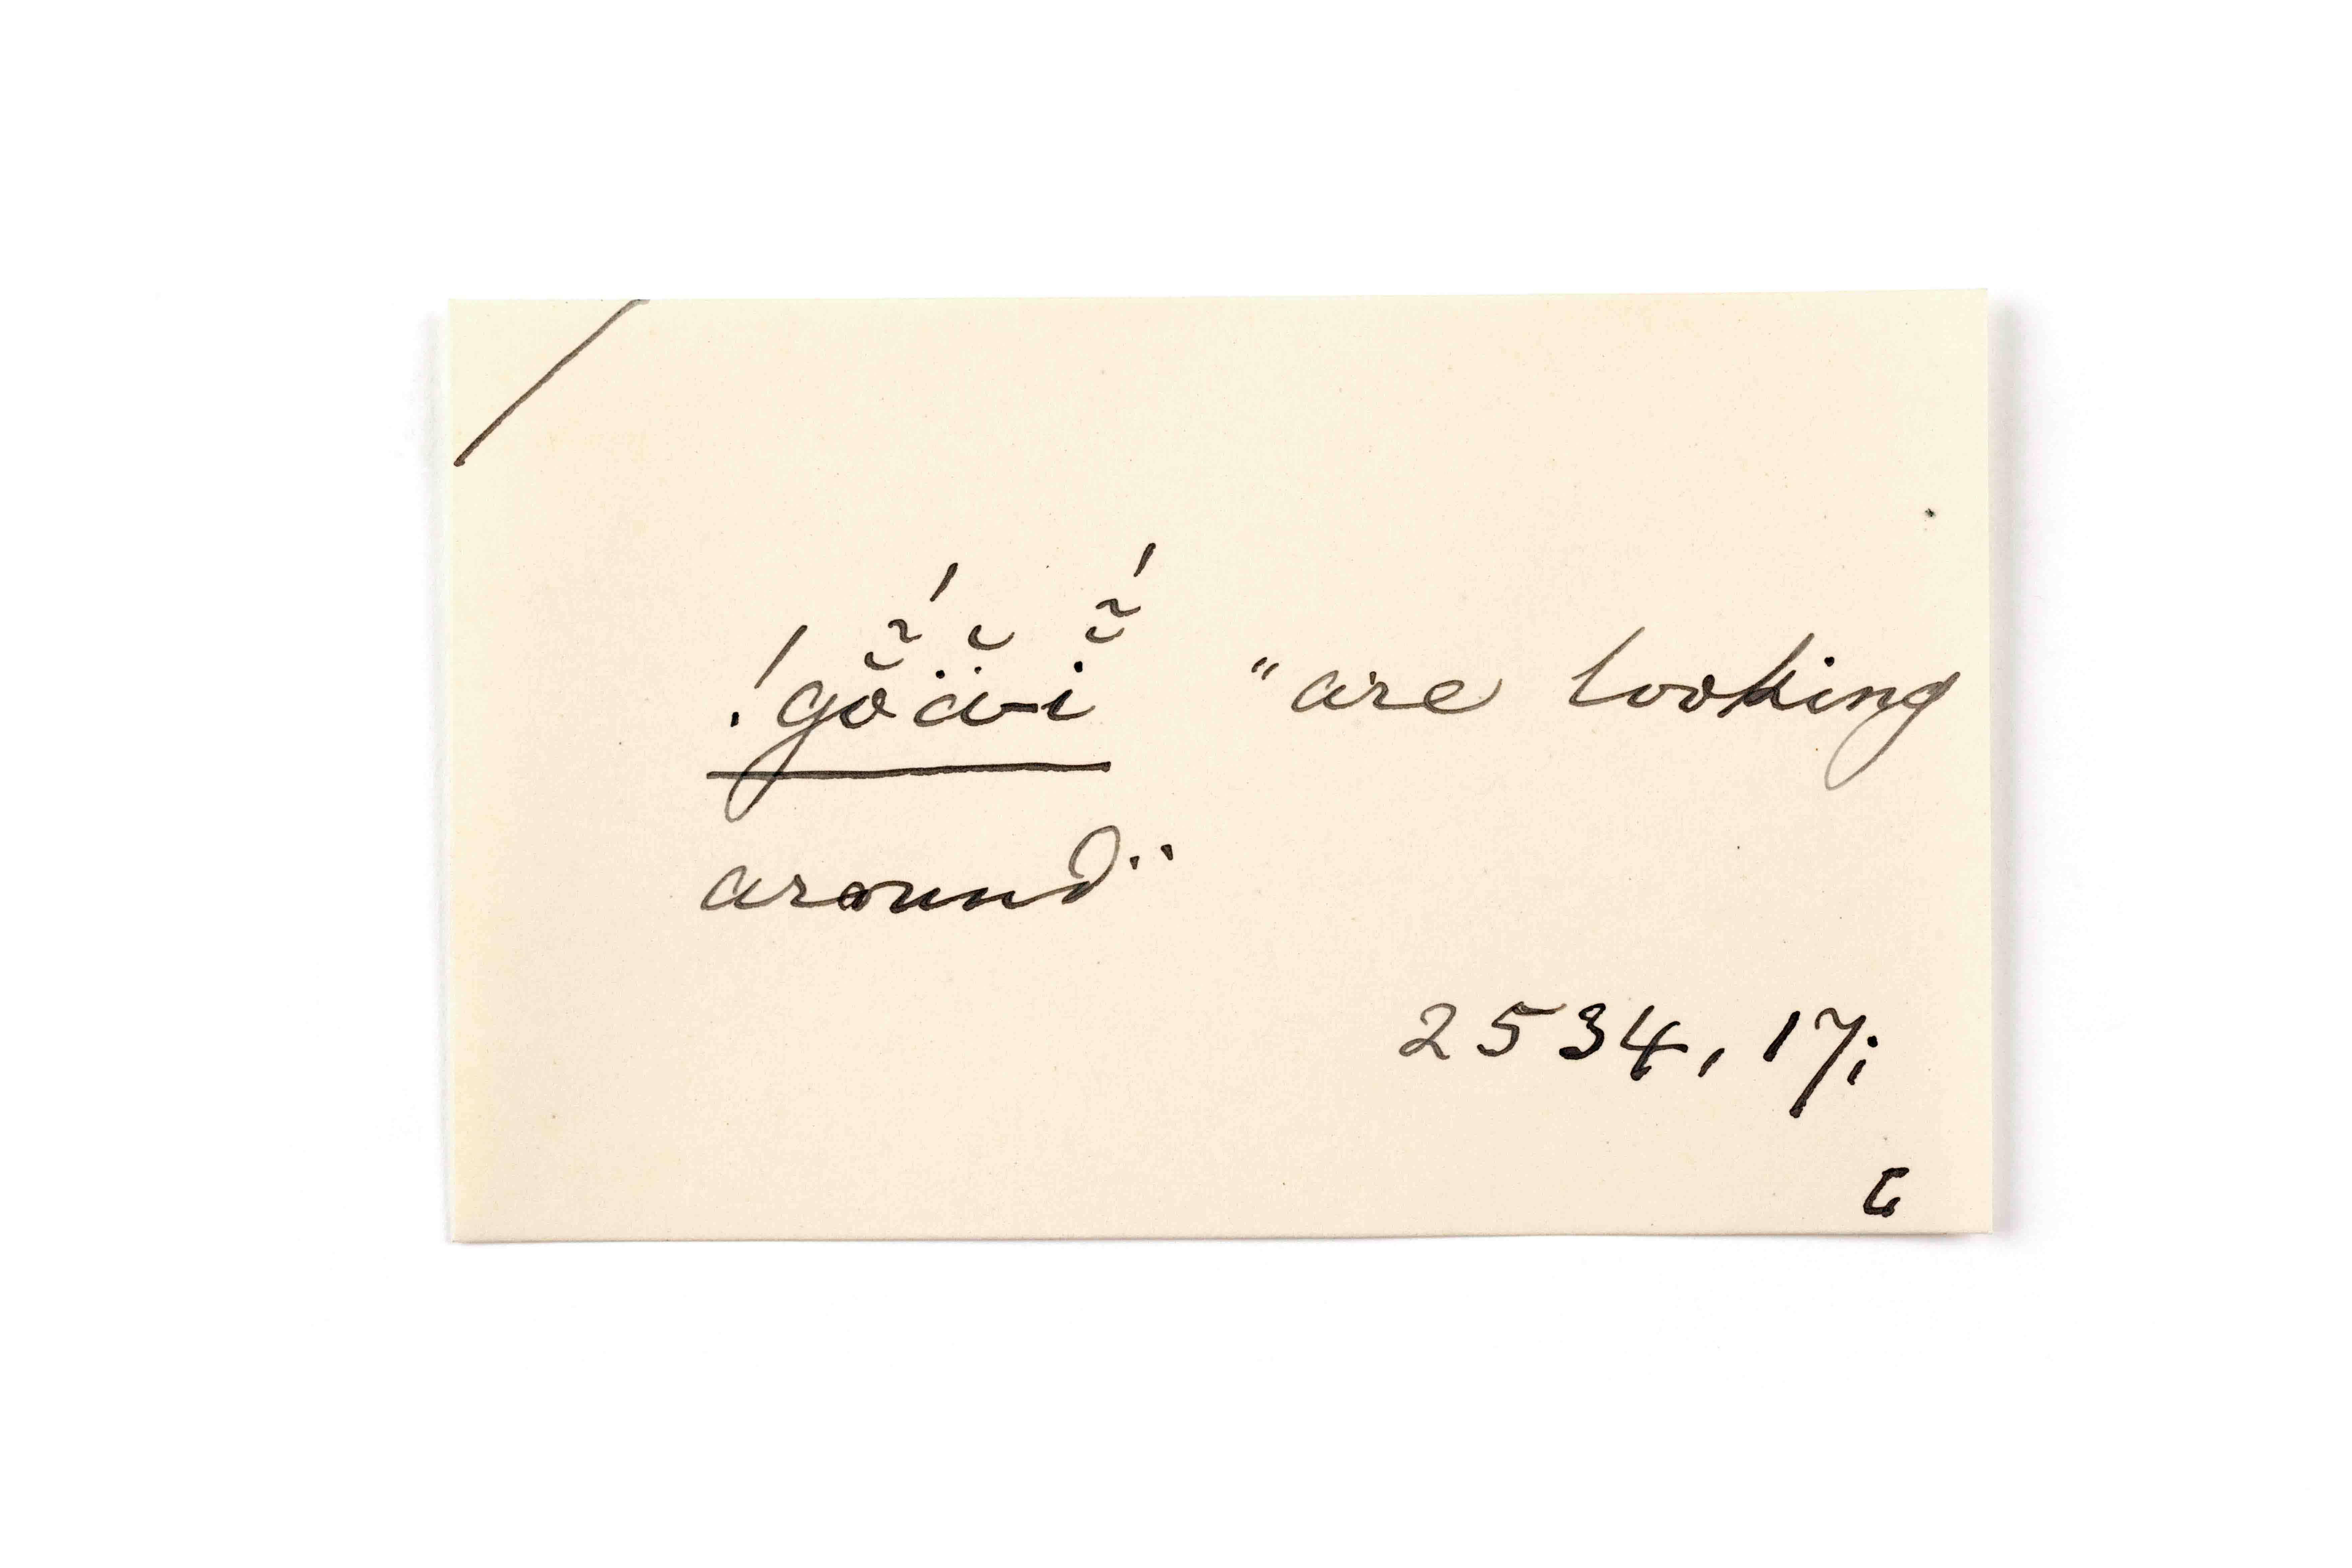 !gŏ̃́ä̆-ĭ̃́ "are looking
around"
2534, 17;
G